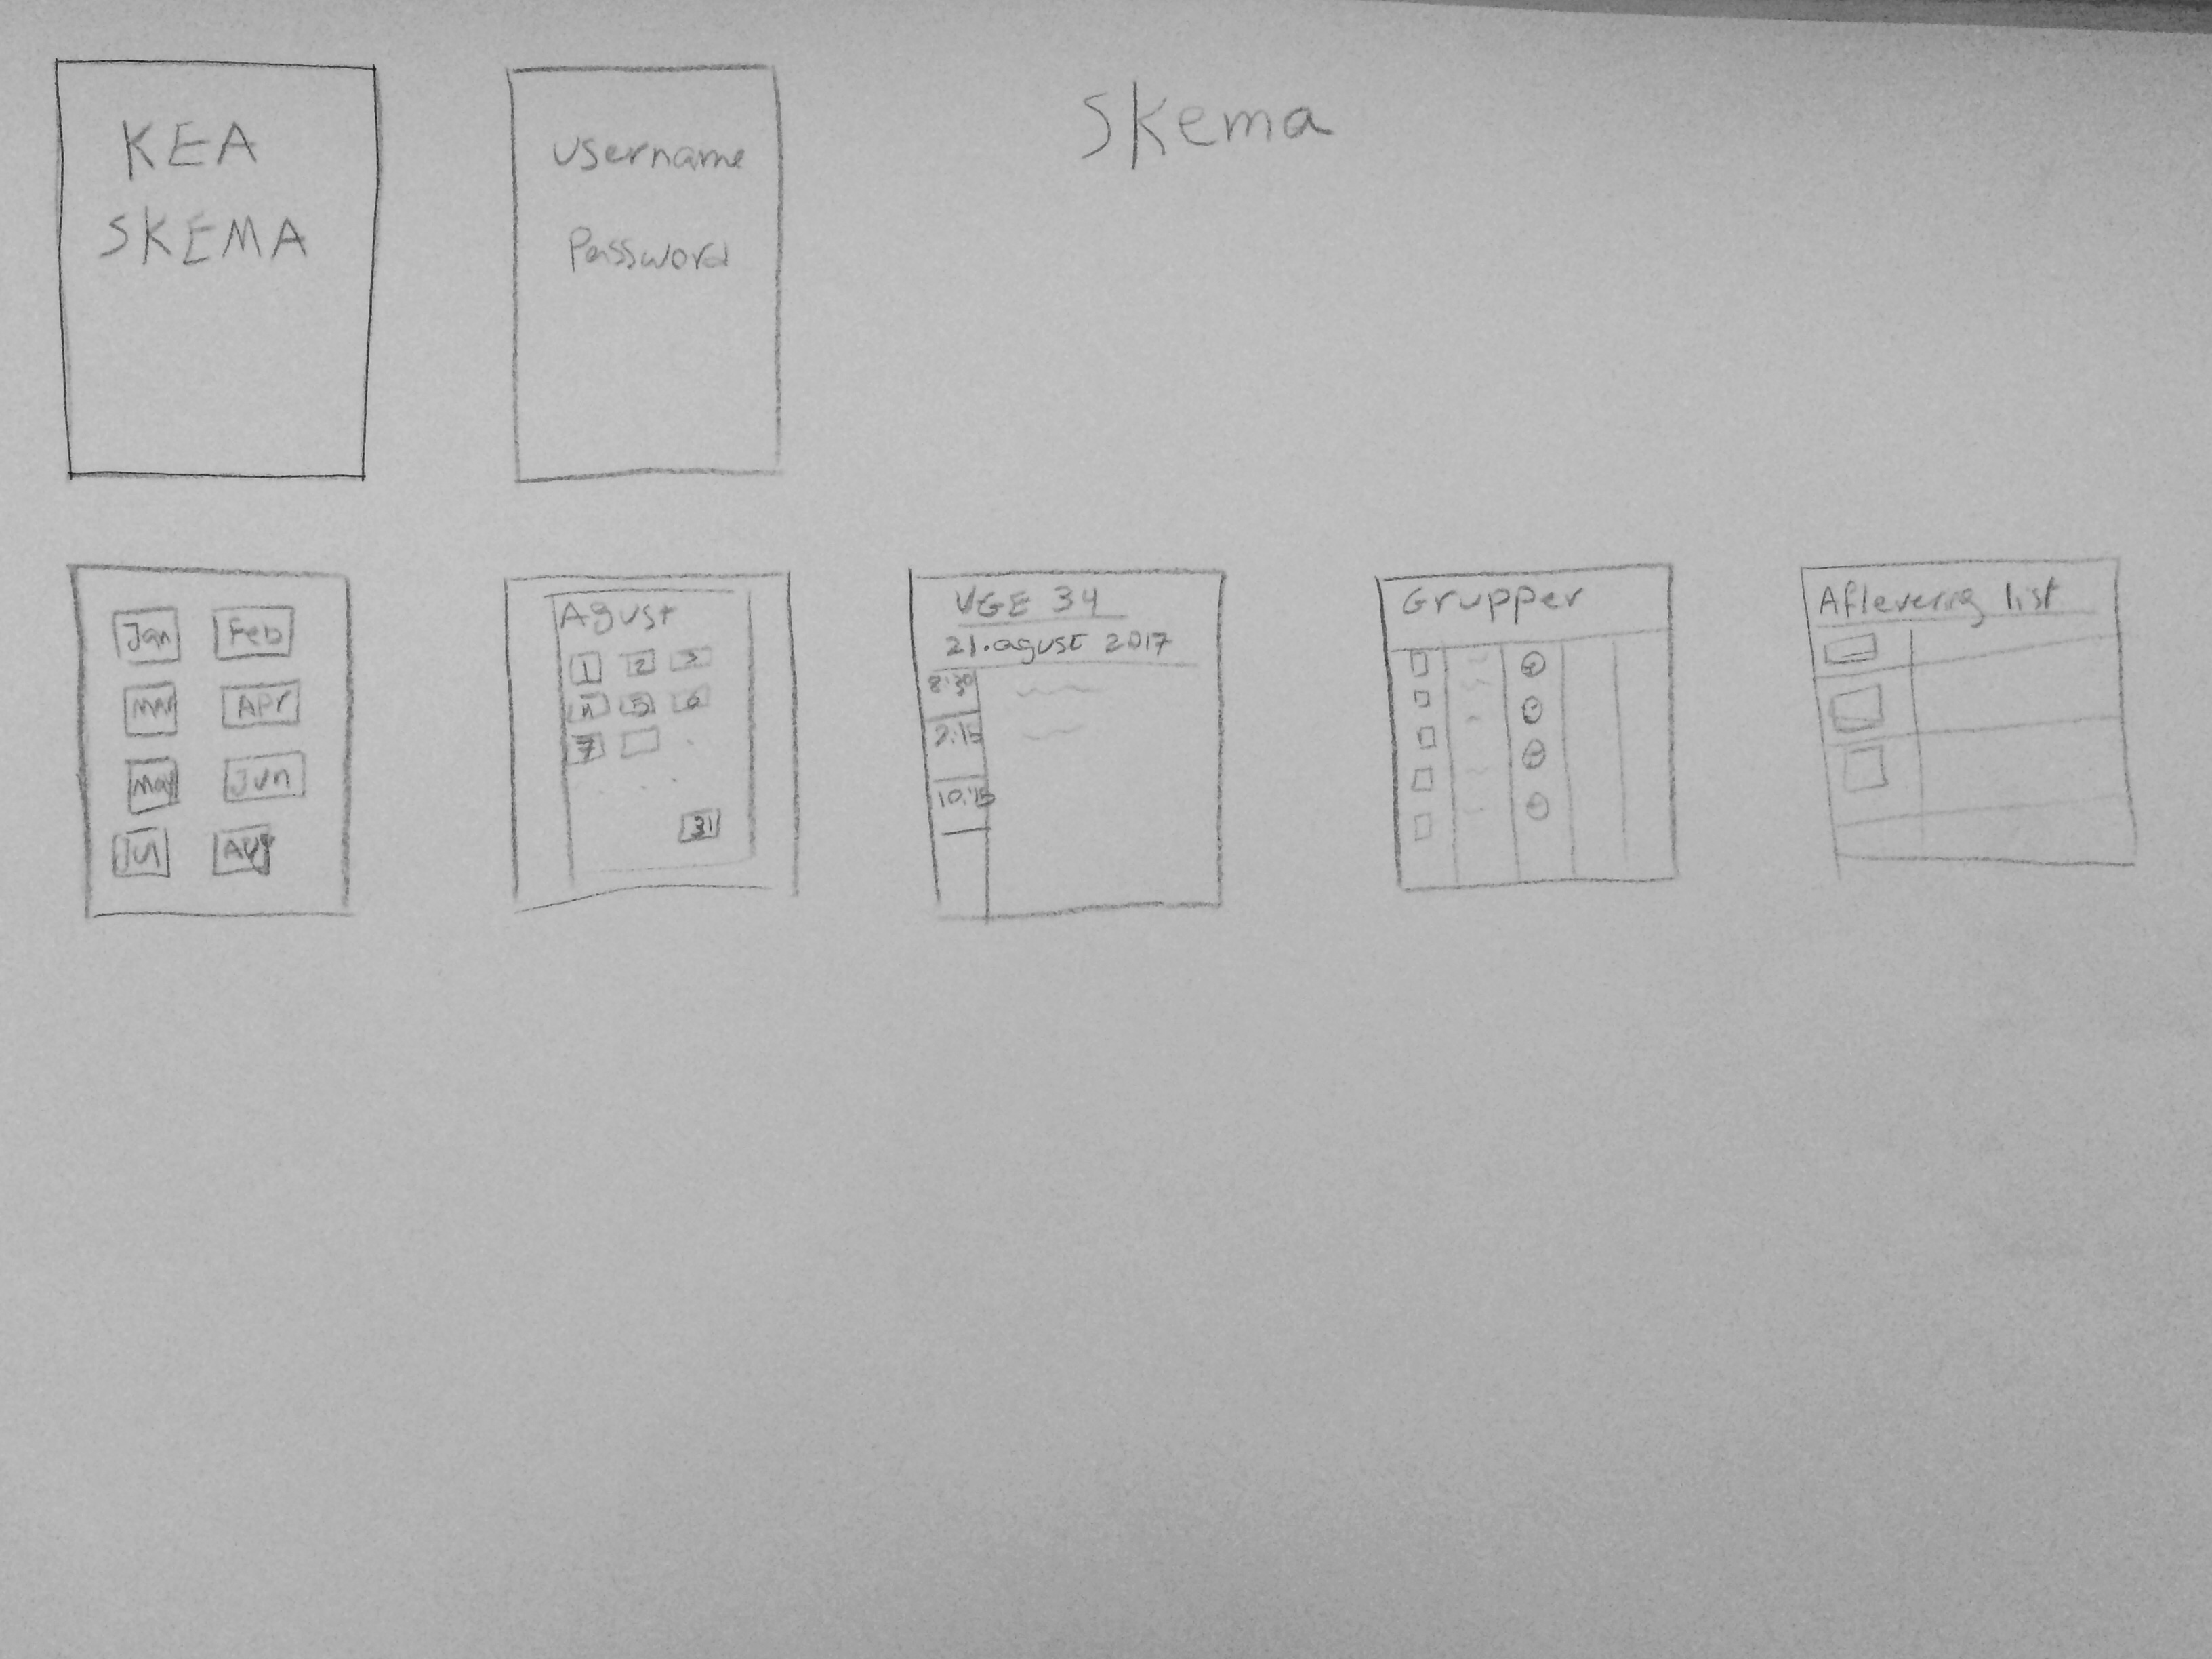 KEA
SKEMA
username
Password
Skema
Jan Feb
Mar APr
May Jun
Jul Aug
Agust
1 2 3
4 5 6
7
31
UGE 34
21. agust 2017
8:30
9:15
10:15
Grupper
Aflevering list